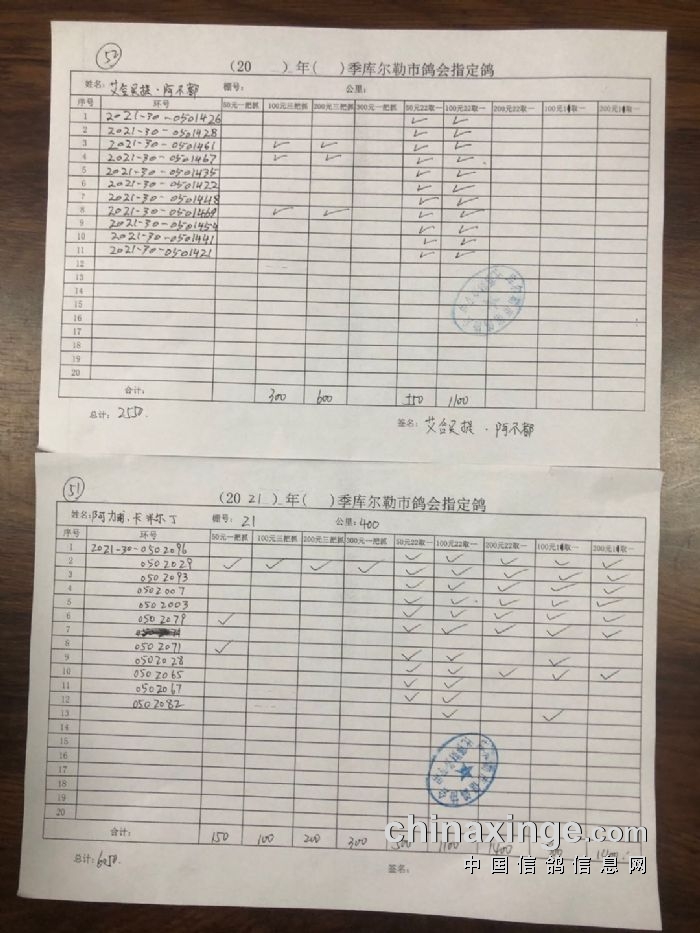 52
（20　　）年（　　）季库尔勒市鸽会指定鸽
姓名：艾合买提·阿不都　棚号：　公里：
序号　环号　50元一把抓　100元三把抓　200元三把抓　300元一把抓　50元22取一　100元22取一　200元22取一　100元1取一　200元1取一
1　2021-30-0501426　✓　✓
2　2021-30-0501428　✓　✓
3　2021-30-0501461　✓　✓　✓　✓
4　2021-30-0501467　✓　✓　✓　✓
5　2021-30-0501435　✓　✓
6　2021-30-0501422　✓　✓
7　2021-30-0501448　✓　✓
8　2021-30-0501469　✓　✓　✓　✓
9　2021-30-0501454　✓　✓
10　2021-30-0501441　✓　✓
11　2021-30-0501421　✓　✓
12
13
14
15
16
17
18
19
20
合计：　300　600　550　1100
总计：2550.　签名：艾合买提·阿不都
51
（20 21）年（　　）季库尔勒市鸽会指定鸽
姓名：阿力甫、卡米尔丁　棚号：21　公里：400
序号　环号　50元一把抓　100元三把抓　200元三把抓　300元一把抓　50元22取一　100元22取一　200元22取一　100元1取一　200元1取一
1　2021-30-0502096　✓　✓　✓　✓　✓
2　0502029　✓　✓　✓　✓　✓　✓　✓　✓　✓
3　0502093　✓　✓　✓　✓　✓
4　0502007　✓　✓　✓　✓　✓
5　0502003　✓　✓　✓　✓　✓
6　0502079　✓　✓　✓　✓　✓　✓
7
8　0502071　✓
9　0502028　✓　✓　✓
10　0502065　✓　✓　✓　✓　✓
11　0502067　✓　✓
12　0502082　✓　✓
13　✓　✓
14
15
16
17
18
19
20
合计：　150　100　200　300　500　1100　1400
总计：6050.　签名：
chinaxinge.com
中国信鸽信息网